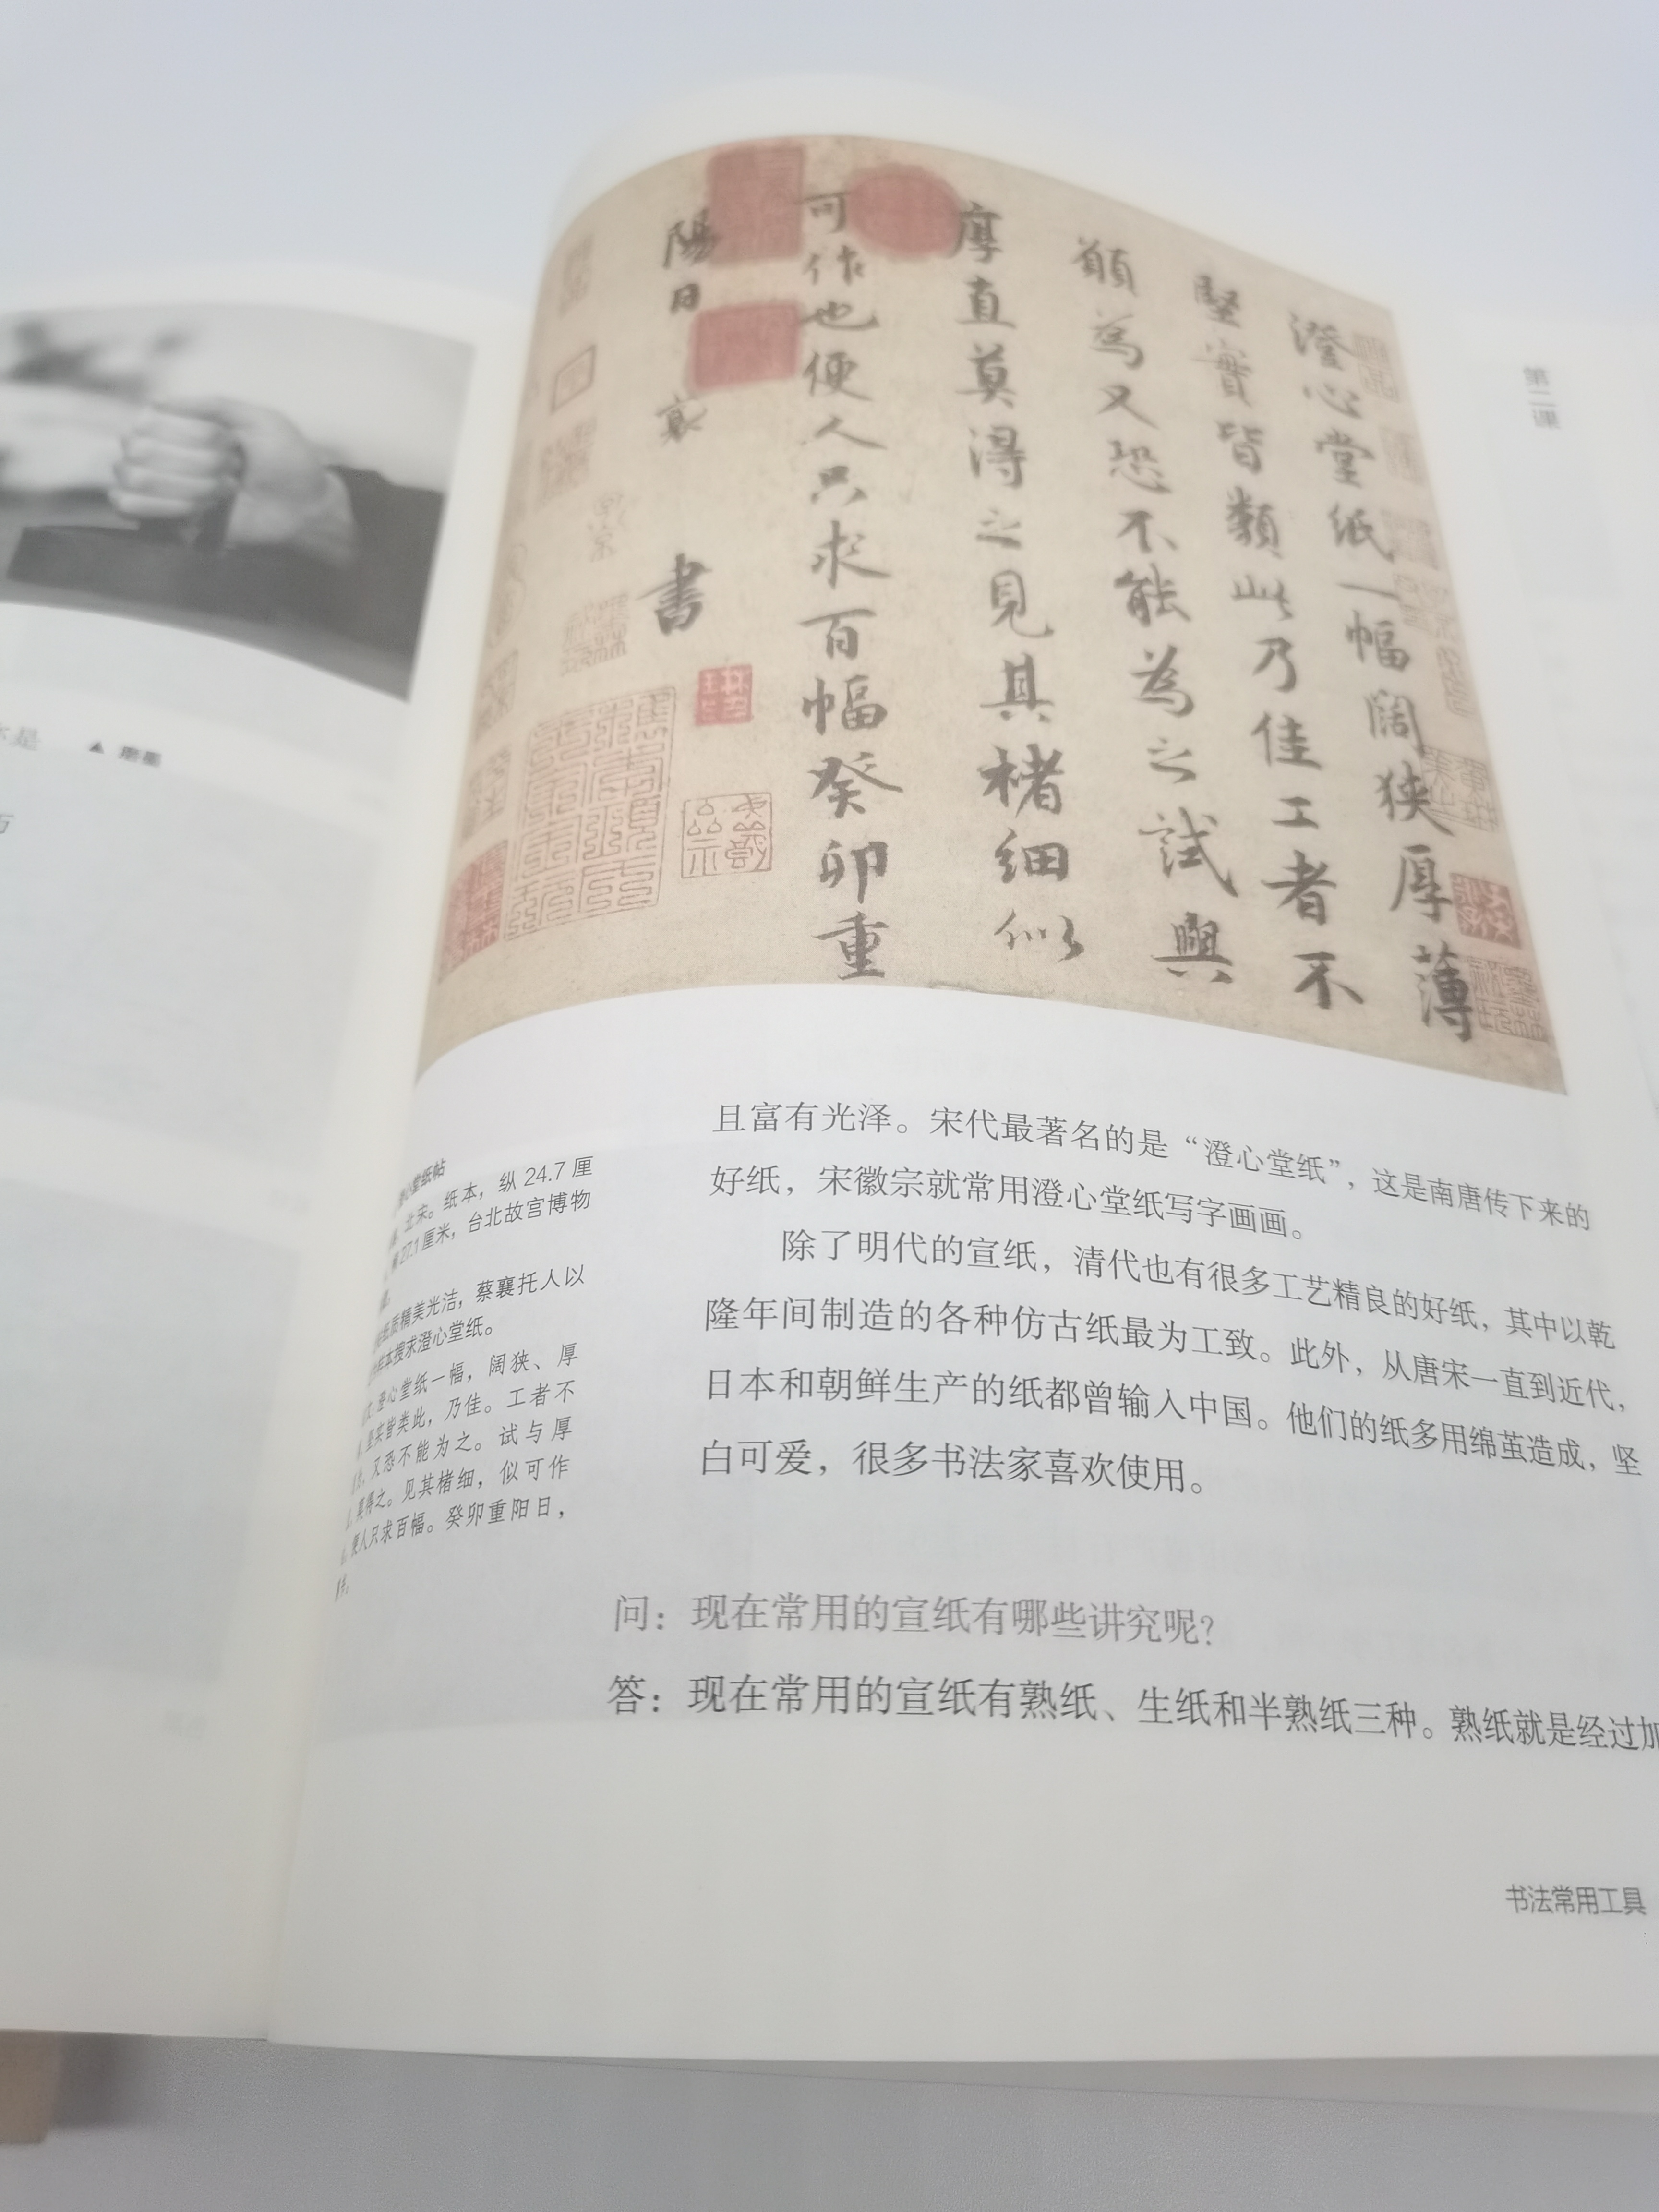 第二课
澄心堂纸一幅阔狭厚薄
堅實皆類此乃佳工者不
願為又恐不能為之試與
厚直莫得之見其楮细似
可作也便人只求百幅癸卯重
陽日 襄 書
▲ 磨墨
且富有光泽。宋代最著名的是“澄心堂纸”，这是南唐传下来的
好纸，宋徽宗就常用澄心堂纸写字画画。
除了明代的宣纸，清代也有很多工艺精良的好纸，其中以乾
隆年间制造的各种仿古纸最为工致。此外，从唐宋一直到近代，
日本和朝鲜生产的纸都曾输入中国。他们的纸多用绵茧造成，坚
白可爱，很多书法家喜欢使用。
心堂纸帖
北宋。纸本，纵 24.7 厘
27.1 厘米，台北故宫博物
质精美光洁，蔡襄托人以
本搜求澄心堂纸。
澄心堂纸一幅，阔狭、厚
坚实皆类此，乃佳。工者不
又恐不能为之。试与厚
莫得之。见其楮细，似可作
便人只求百幅。癸卯重阳日，
书。
问：现在常用的宣纸有哪些讲究呢？
答：现在常用的宣纸有熟纸、生纸和半熟纸三种。熟纸就是经过加
书法常用工具